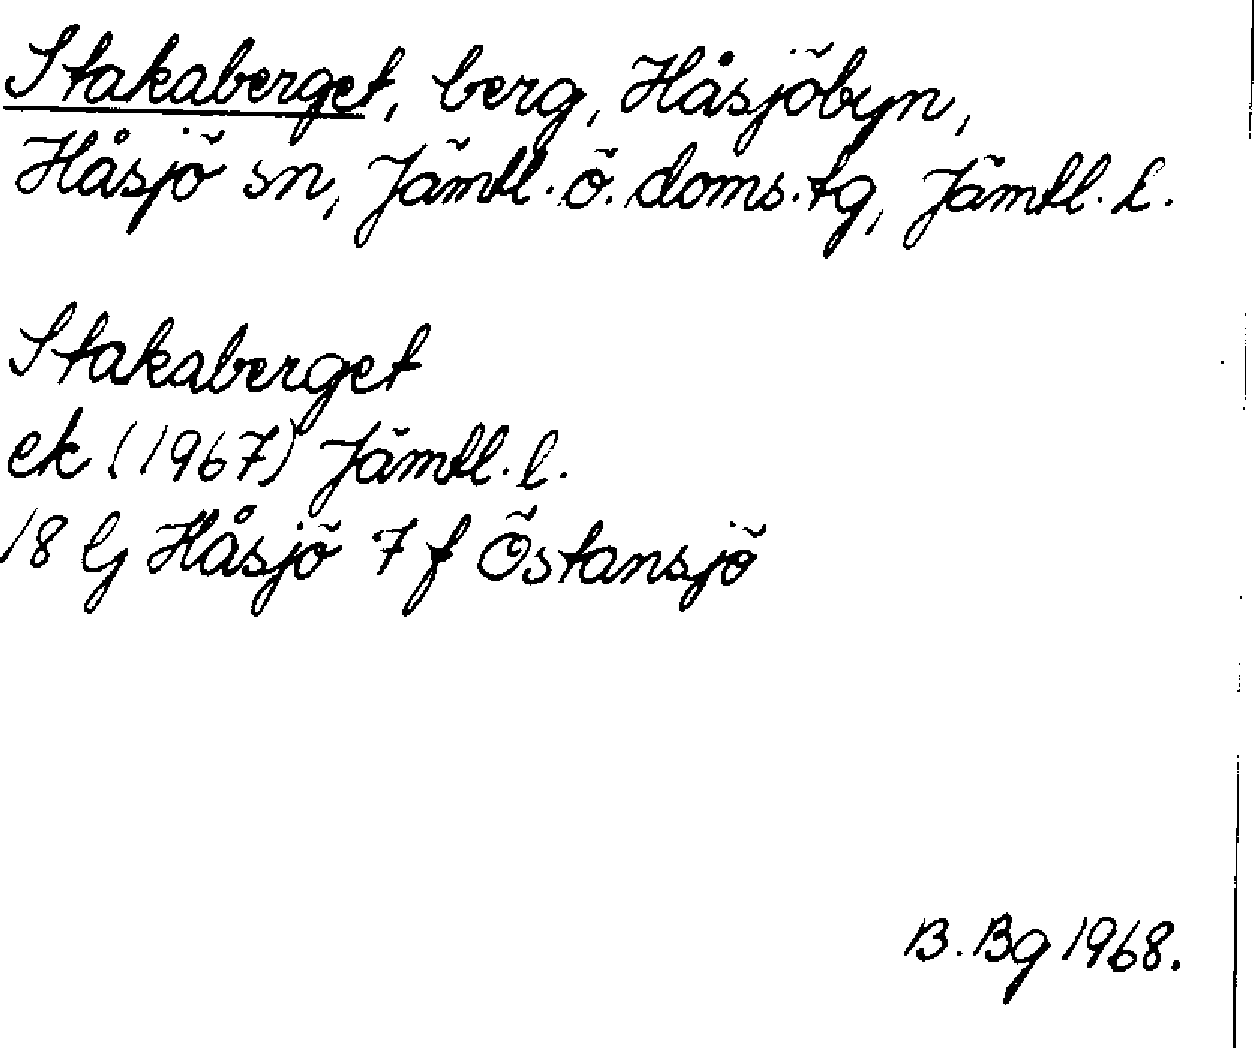 Stakaberget, berg, Håsjöbyn,
Håsjö sn, Jämtl. ö. doms. tg, Jämtl. l.
Stakaberget
ek (1967) Jämtl. l.
18 G Håsjö 7 f Östansjö
B. Bg 1968.